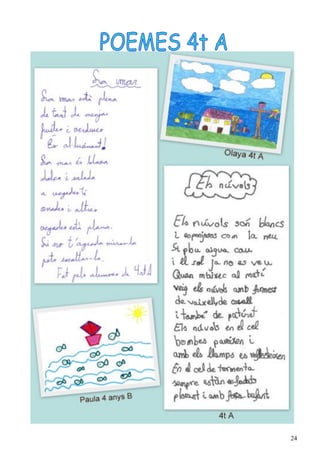 POEMES 4t A
La mar
La mar està plena
de tant de menjar
fruites i verdures
És al·lucinant!
La mar és blava
dolça i salada
a vegades té
onades i altres
vegades està plana.
Si no t'agrada mirar-la
pots escoltar-la.
Fet pels alumnes de 4rt A
Olaya 4t A
Els núvols
Els núvols són blancs
i esponjosos com la neu
Si plou aigua cau
i el sol ja no es veu
Quan m'aixec al matí
veig els núvols amb formes
de vaixell, de cavall
i també de patinet
Els núvols en el cel
bombes pareixen i
amb els llamps es
En el cel de tormenta
sempre estàn enfadats
plorant i amb
Paula 4 anys B
4t A
24